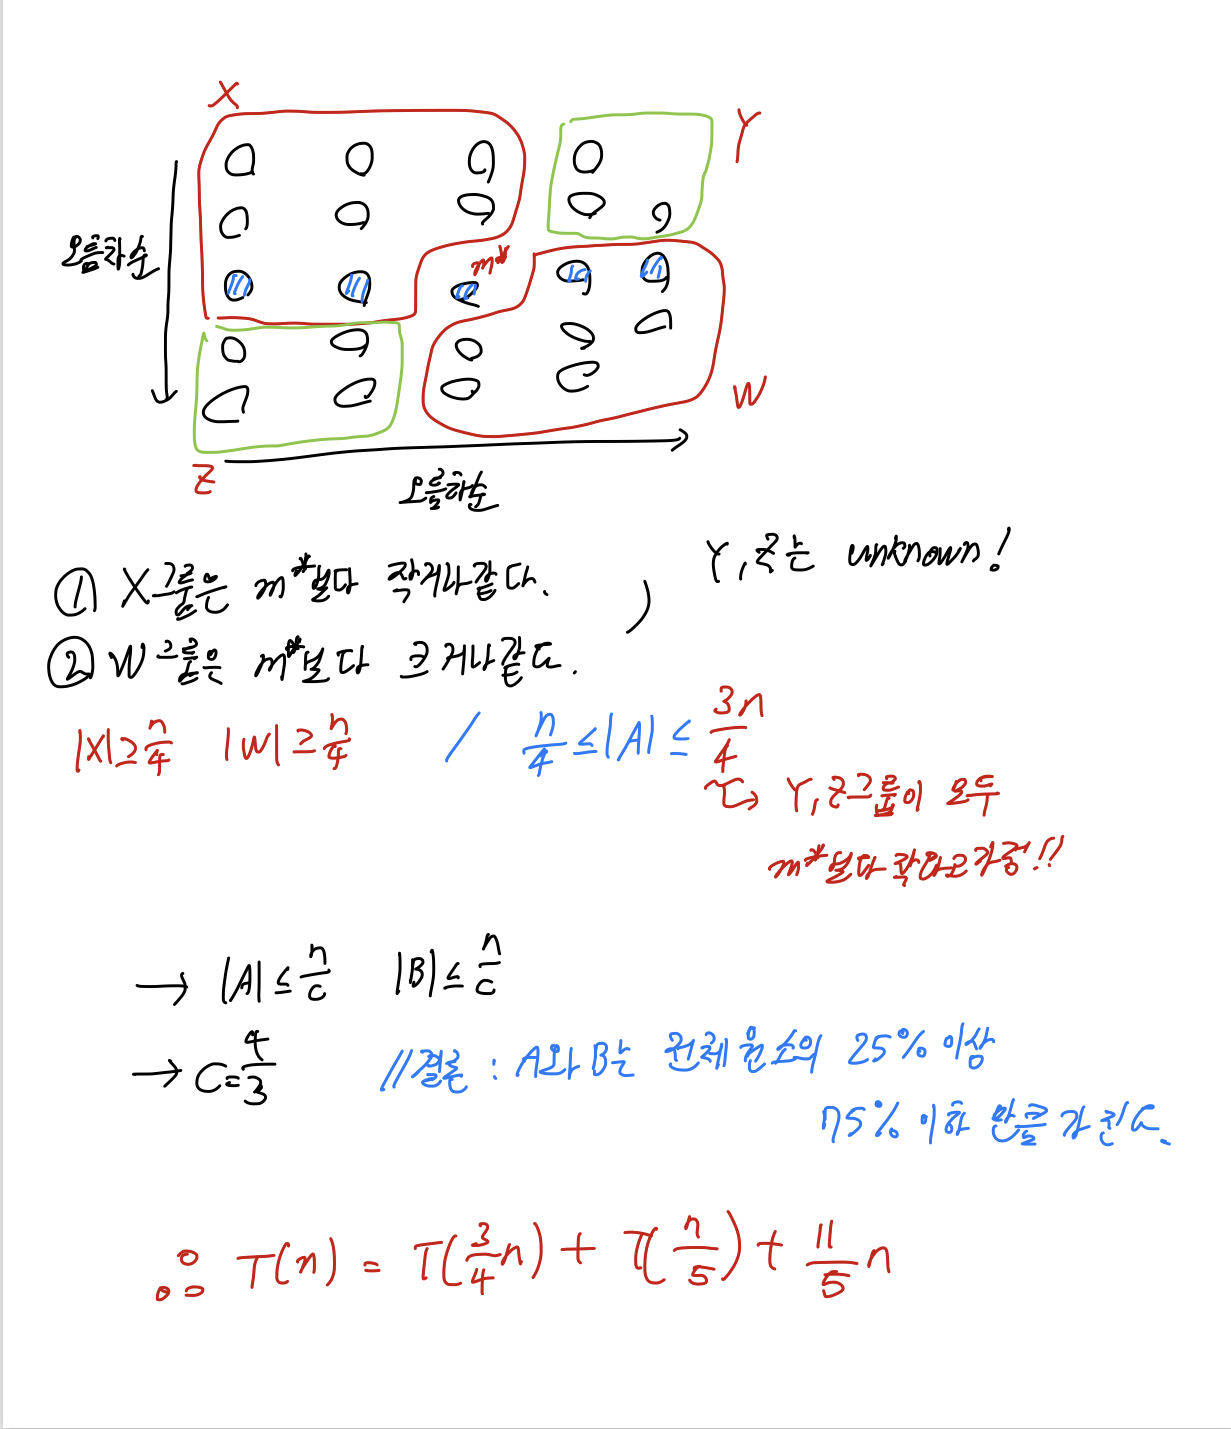 X
Y
오름차순
m*
W
Z
오름차순
① X그룹은 m*보다 작거나같다.
② W그룹은 m*보다 크거나같다.
) Y, Z는 unknown!
|X| ≥ n/4 |W| ≥ n/4 / n/4 ≤ |A| ≤ 3n/4
↝ Y, Z그룹이 모두
m*보다 작다고가정!!
→ |A| ≤ n/c |B| ≤ n/c
→ C = 4/3 //결론 : A와 B는 전체 원소의 25% 이상
75% 이하 만큼 가진다.
∴ T(n) = T(3/4 n) + T(n/5) + 11/5 n